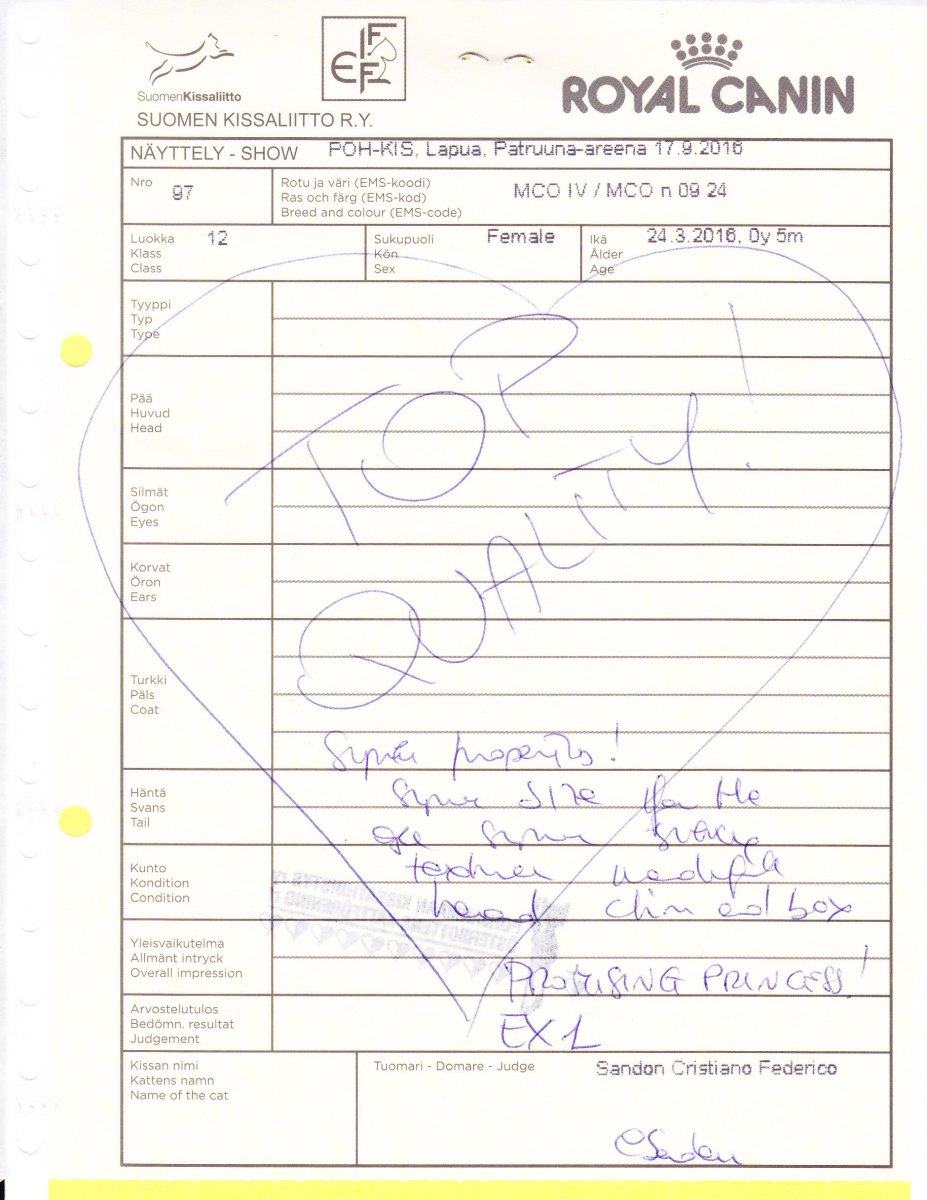 SuomenKissaliitto
FIFE
ROYAL CANIN
SUOMEN KISSALIITTO R.Y.
NÄYTTELY - SHOW POH-KIS, Lapua, Patruuna-areena 17.9.2016
Nro 97
Rotu ja väri (EMS-koodi)
Ras och färg (EMS-kod)
Breed and colour (EMS-code)
MCO IV / MCO n 09 24
Luokka 12
Klass
Class
Sukupuoli Female
Kön
Sex
Ikä 24.3.2016, 0y 5m
Ålder
Age
Tyyppi
Typ
Type
Pää
Huvud
Head
Silmät
Ögon
Eyes
Korvat
Öron
Ears
Turkki
Päls
Coat
TOP
QUALITY!
Super !
Häntä
Svans
Tail
Super SIZE for the
age super
Kunto
Kondition
Condition
texture
head chin and box
Yleisvaikutelma
Allmänt intryck
Overall impression
PROMISING PRINCESS!
Arvostelutulos
Bedömn. resultat
Judgement
EX 1
Kissan nimi
Kattens namn
Name of the cat
Tuomari - Domare - Judge Sandon Cristiano Federico
CSandon